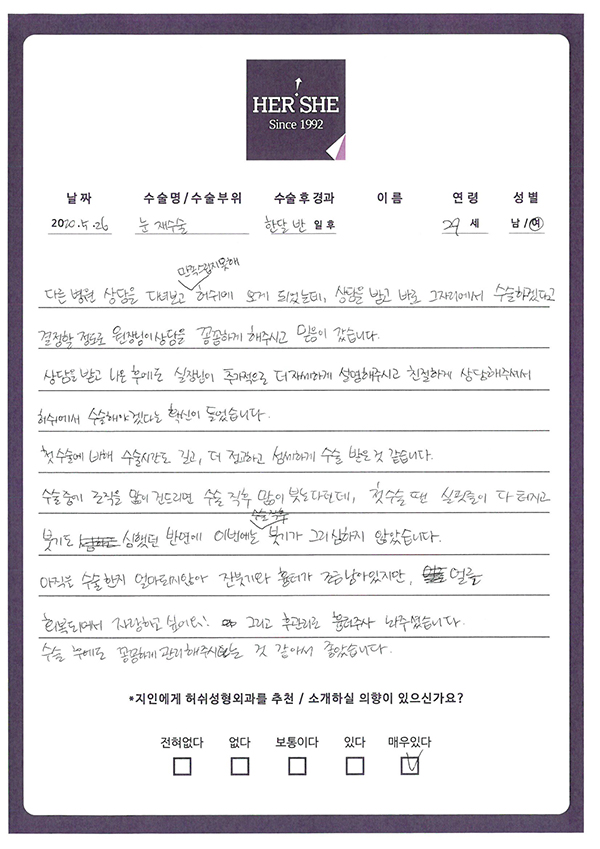 HER SHE
Since 1992
날짜 수술명/수술부위 수술후경과 이름 연령 성별
2020.5.26 눈 재수술 한달 반 일 후 29 세 남/여
만족스럽지못해
다른 병원 상담을 다녀보고 허쉬에 오게 되었는데, 상담을 받고 바로 그자리에서 수술하겠다고
결정할 정도로 원장님이 상담을 꼼꼼하게 해주시고 믿음이 갔습니다.
상담을 받고 나온 후에도 실장님이 추가적으로 더 자세하게 설명해주시고 친절하게 상담해주셔서
허쉬에서 수술해야겠다는 확신이 들었습니다.
첫수술에 비해 수술시간도 길고, 더 정교하고 섬세하게 수술 받은것 같습니다.
수술중에 조직을 많이 건드리면 수술 직후 많이 붓는다던데, 첫수술 땐 실핏줄이 다 터지고
수술직후
붓기도 심했던 반면에 이번에는 붓기가 그리 심하지 않았습니다.
아직은 수술한지 얼마되지않아 잔붓기와 흉터가 조금 남아있지만, 얼른
회복되어서 자랑하고 싶어요! 그리고 후관리로 흉터주사 놔주셨습니다.
수술 후에도 꼼꼼하게 관리해주시는 것 같아서 좋았습니다.
*지인에게 허쉬성형외과를 추천 / 소개하실 의향이 있으신가요?
전혀없다 없다 보통이다 있다 매우있다